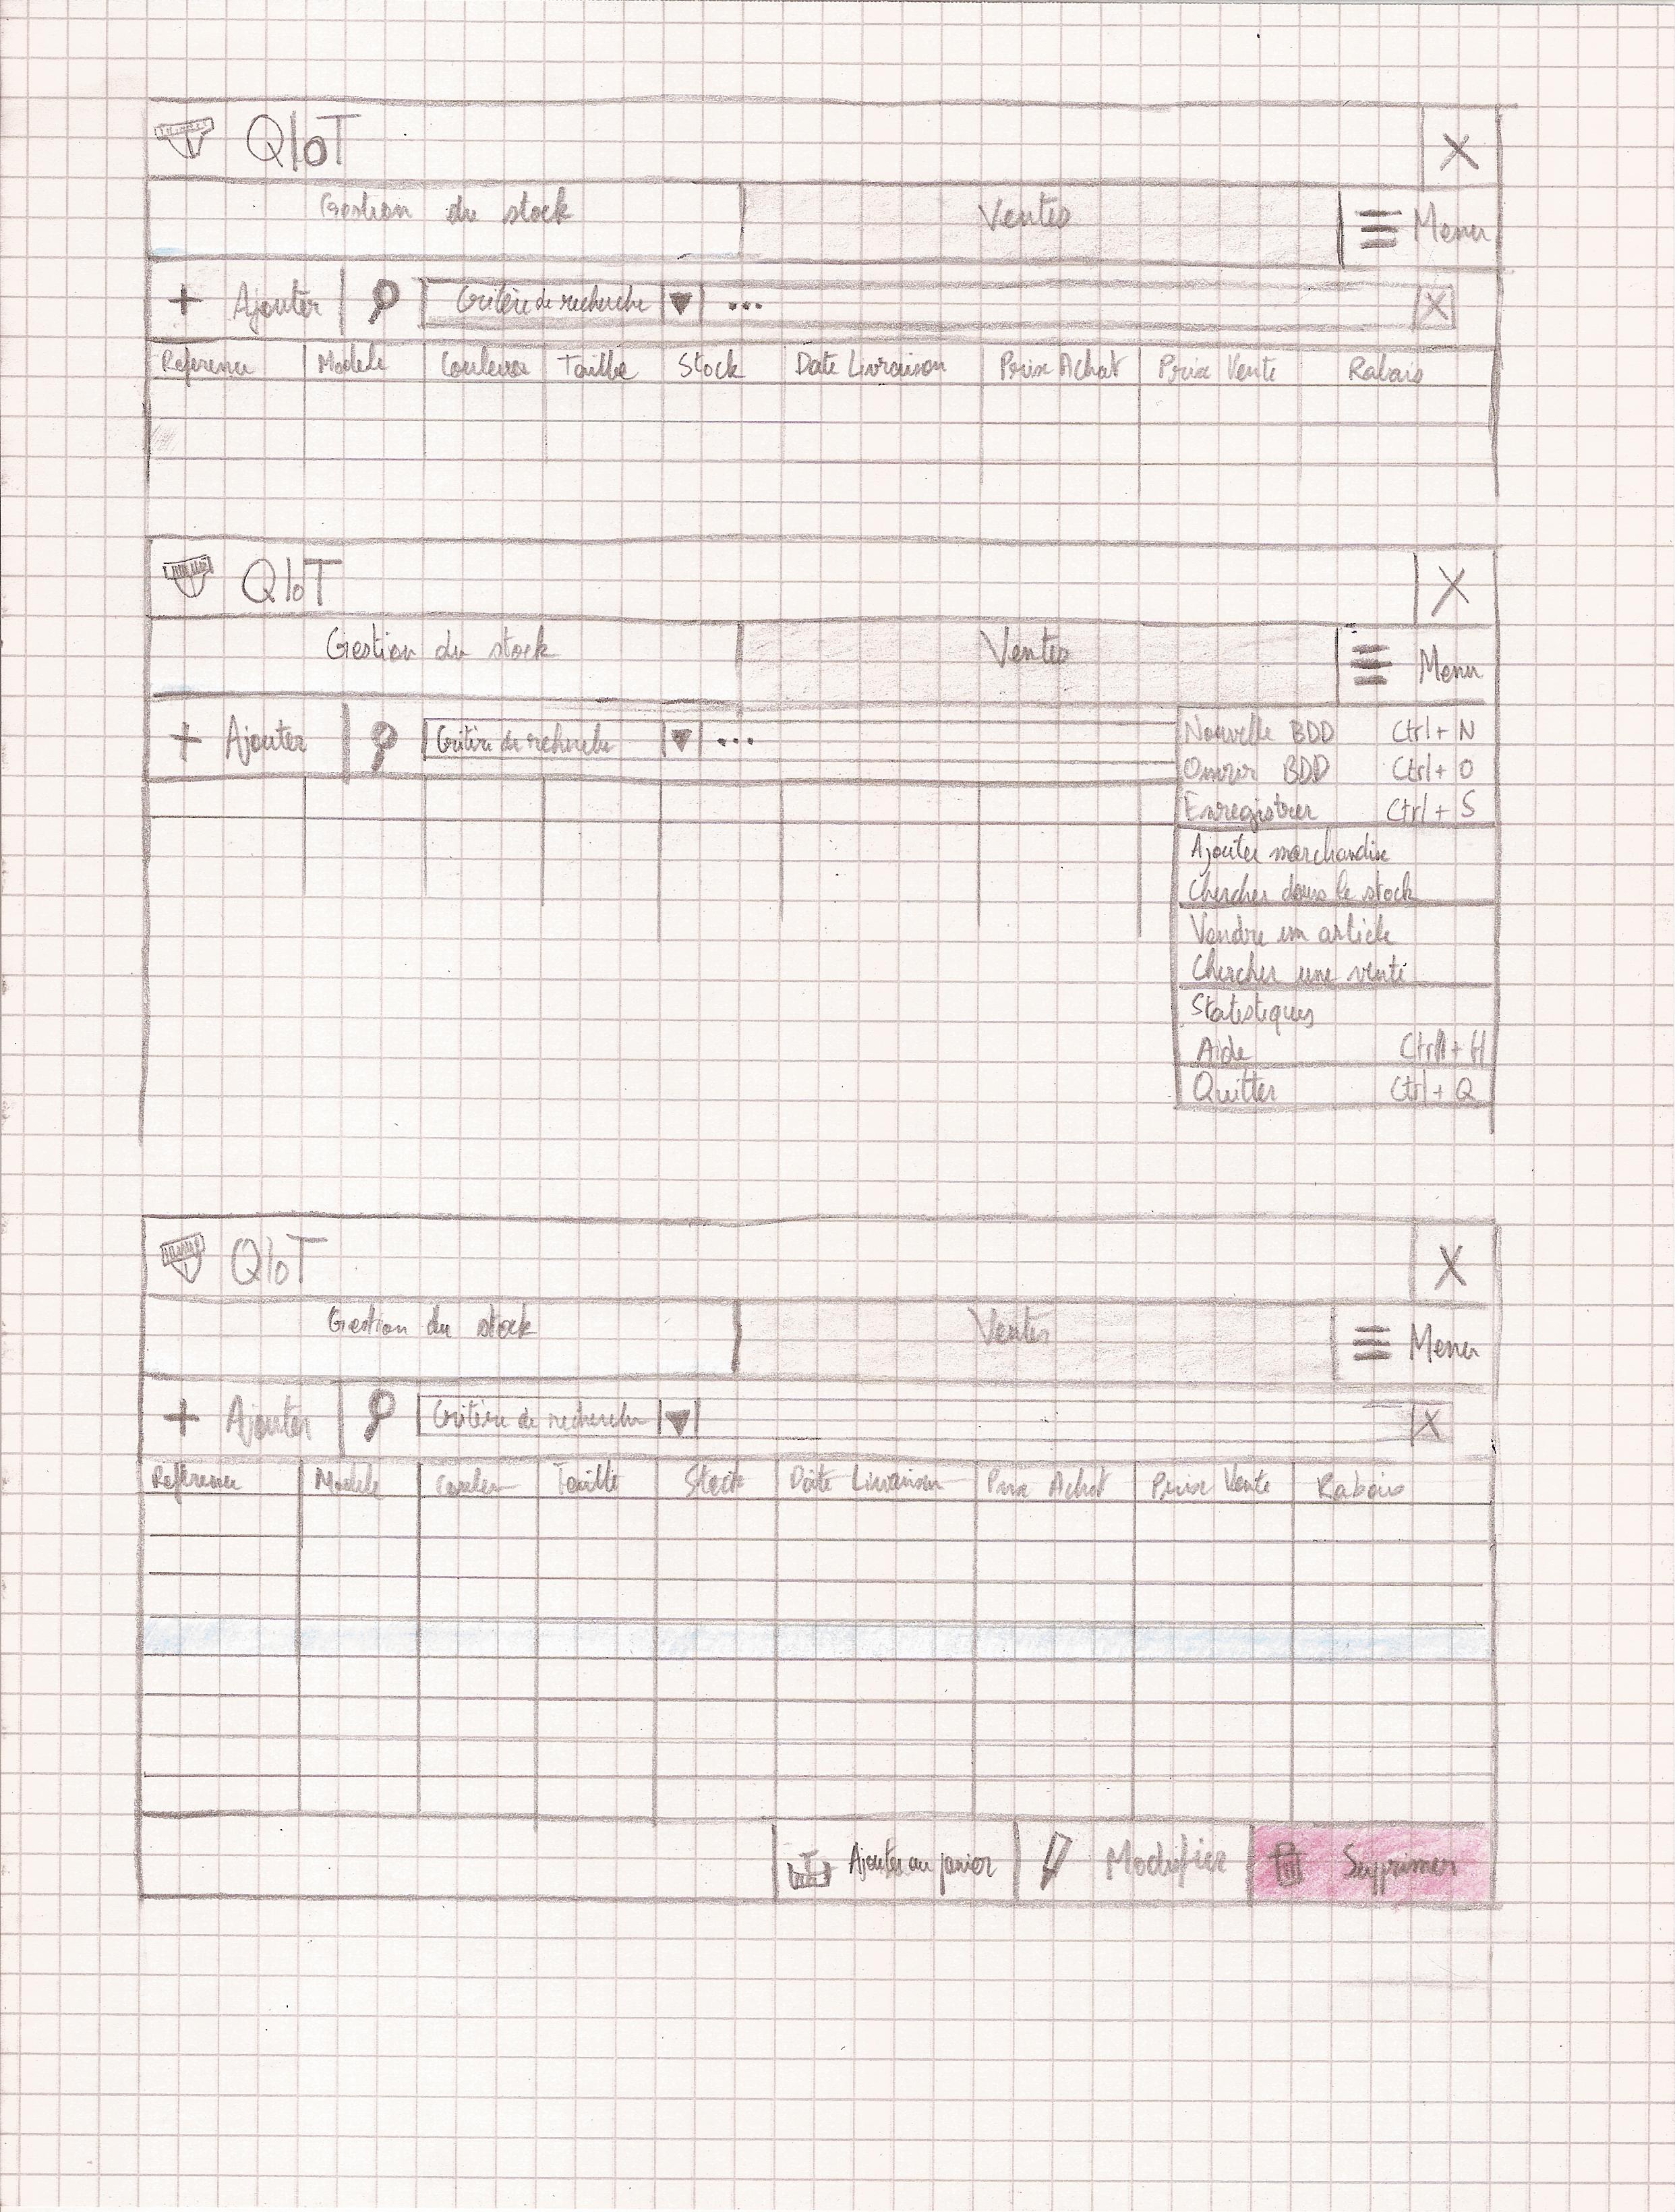 QIoT X
Gestion du stock Ventes Menu
+ Ajouter Critère de recherche ... X
Reference Modele Couleur Taille Stock Date Livraison Prix Achat Prix Vente Rabais
QIoT X
Gestion du stock Ventes Menu
+ Ajouter Critère de recherche ...
Nouvelle BDD Ctrl + N
Ouvrir BDD Ctrl + O
Enregistrer Ctrl + S
Ajouter marchandise
Chercher dans le stock
Vendre un article
Chercher une vente
Statistiques
Aide Ctrl + H
Quitter Ctrl + Q
QIoT X
Gestion du stock Ventes Menu
+ Ajouter Critère de recherche X
Reference Modele Couleur Taille Stock Date Livraison Prix Achat Prix Vente Rabais
Ajouter au panier Modifier Supprimer